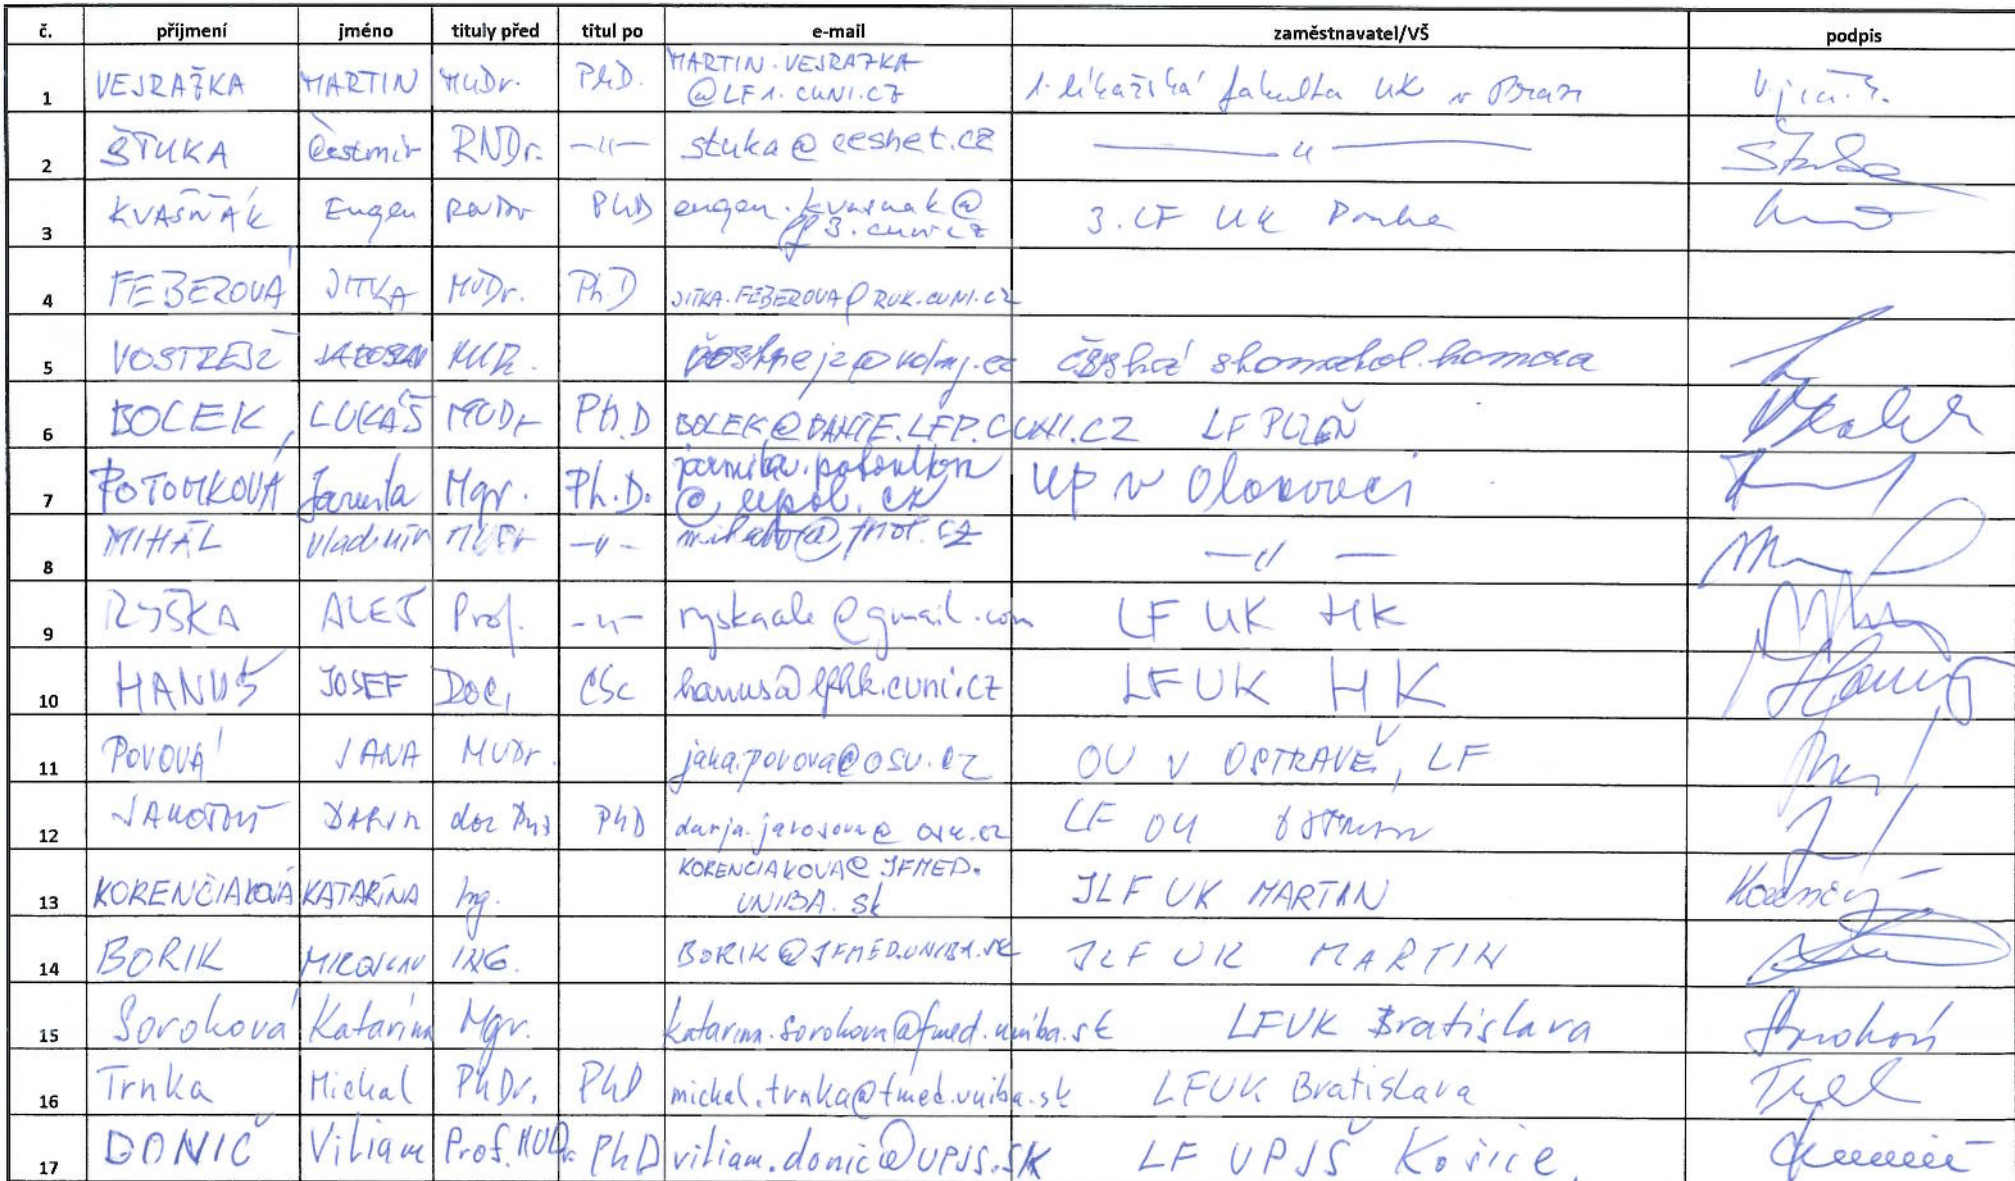 č. příjmení jméno tituly před titul po e-mail zaměstnavatel/VŠ podpis
1 VEJRAŽKA MARTIN MUDr. PhD. MARTIN.VEJRAZKA
@LF1.CUNI.CZ 1. lékařská fakulta UK v Praze
2 ŠTUKA Čestmír RNDr. —〃— stuka@cesnet.cz —〃—
3 KVAŠŇÁK Eugen RNDr PhD eugen.kvasnak@
lf3.cuni.cz 3. LF UK Praha
4 FEBEROVÁ JITKA MUDr. Ph.D JITKA.FEBEROVA@RUK.CUNI.CZ
5 VOSTŘEJŽ česká stomatol. komora
6 BOLEK, LUKÁŠ MUDr Ph.D BOLEK@DANTE.LFP.CUNI.CZ LF PLZEŇ
7 POTOMKOVÁ Jarmila Mgr. Ph.D. jarmila.potomkova
@upol.cz UP v Olomouci
8 MIHÁL Vladimír MUDr —〃— —〃—
9 RYŠKA ALEŠ Prof. —〃— ryskaale@gmail.com LF UK HK
10 HANUŠ JOSEF Doc. CSc hanus@lfhk.cuni.cz LFUK HK
11 POVOVÁ JANA MUDr. jana.povova@osu.cz OU V OSTRAVĚ, LF
12 PhD darja.jarosova@osu.cz LF OU
13 KORENČIAKOVÁ KATARÍNA Ing. KORENCIAKOVA@JFMED.
UNIBA.SK JLF UK MARTIN
14 BORIK MIROSLAV ING. BORIK@JFMED.UNIBA.SK JLF UK MARTIN
15 Soroková Katarína Mgr. katarina.sorokova@fmed.uniba.sk LFUK Bratislava
16 Trnka Michal PhDr. PhD michal.trnka@fmed.uniba.sk LFUK Bratislava
17 DONIČ Viliam Prof. MUDr. PhD viliam.donic@UPJS.SK LF UPJŠ Košice.